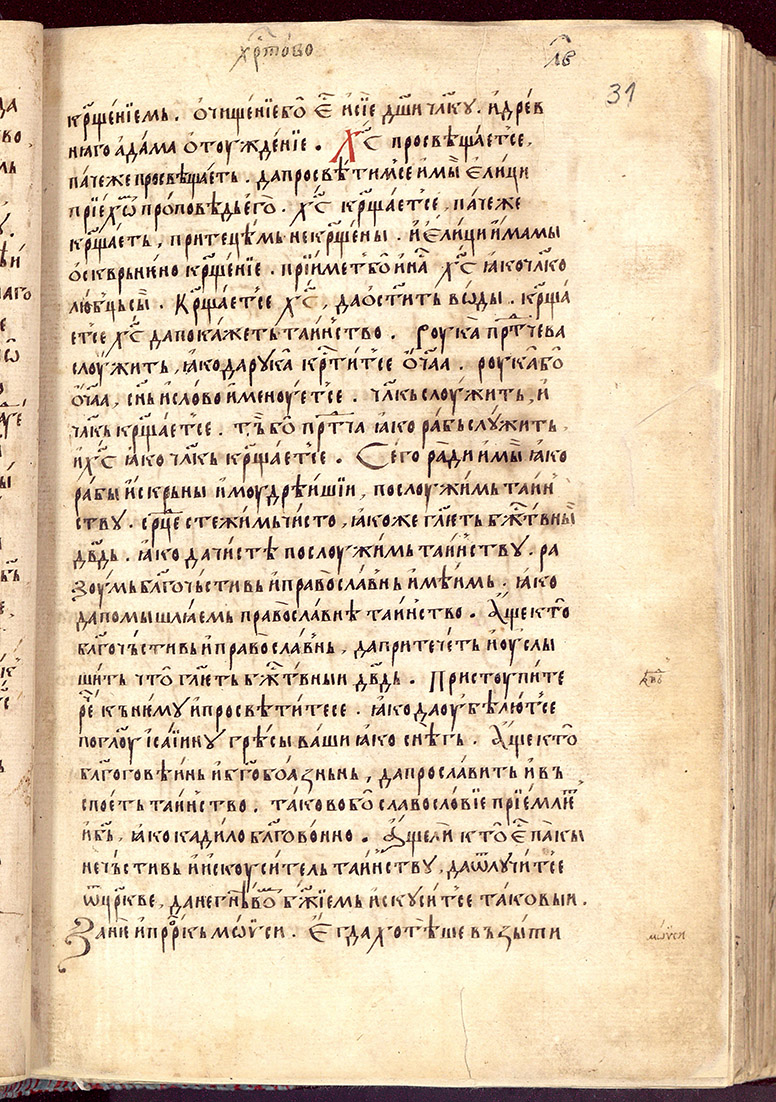 хр҃тово
л҃в
31
крⷭ҇щенїемь. ѻчищенїебо̀ є҆ⷭ҇ и҆сїе дш҃и члкꙋ҃. и҆древ
нꙗгоа҆дама ѻ҆тоужденїе. Хс҃ просвѣщает'се,
пачежепросвѣщаеть. дапросвѣтим'се и҆мы̀ є҆лици
прїе҆хѡⷨ проповѣдье҆го̀. хс҃ крⷭ҇щает'се, пачеже
крⷭ҇щаеть, притецѣмь некрⷭ҇щены. и҆є҆лици и҆мамы
ѻ҆сквръньно крⷭ҇щенїе. прїиметбо̀ и҆на̀ хс҃ ꙗ҆кочл҃ко
люб'цьсы. Крⷭ҇щает'се хс҃, даѻ҆с҃тить вѡды. крⷭ҇ща
ет'се хс҃ дапокажетьтаин'ство. роука̀ прⷣтчева
слоужить, ꙗ҆кодарука̀ крⷭ҇тит'се ѻ҆ч҃аа. роукабо̀
ѻ҆ч҃аа, сн҃ь и҆слово и҆меноует'се. чл҃кьслоужить, и҆
чл҃кь крⷭ҇щает'се. тъ̀бо̀ прⷣтча ꙗ҆ко рабьслꙋжить,
и҆хс҃ ꙗ҆ко чл҃кь крⷭ҇щает'се. Сего ради и҆мы̀ ꙗ҆ко
рабы и҆скрьны и҆моудрѣишїи, послоужимь таин'
ствꙋ. срⷣце стежимьчисто, ꙗ҆коже гл҃ють бжⷭ҇твныи
дв҃дь. ꙗ҆ко дачистѣ послоужимь таин'ствꙋ. ра
зоумьблг҃очьстивь и҆православнь и҆мѣимь. ꙗ҆ко
дапомышлꙗемь православнѣ таин'ство. А҆щекто̀
блг҃очьстивь и҆православнь, дапритечеть и҆оуслы
шить что̀ гл҃ють бжⷭ҇твныи дв҃дь. Пристоупите
рⷱ҇е кънемꙋ и҆просвѣтитесе. ꙗ҆ко даоубѣлют'се
поглоу и҆саїинꙋ грѣсы ваши ꙗ҆ко снѣгь. А҆щекто̀
блг҃оговѣинь и҆бг҃обоазньнь, дапрославить и҆въ
споеть таин'ство. таковобо̀ славословїе прїемлїеⷮ
и҆бг҃ь, ꙗ҆кокадило блг҃овонно. А҆щели кто̀ є҆ⷭ҇ пакы
нечьстивь и҆и҆скоуситель таин'ствꙋ, даѿлучит'се
ѿцр҃кве, данегнѣвоⷨ бж҃їемь и҆скусит'се таковыи.
Зане и҆прⷪ҇ркь мѡѵси. Є҆гдахотѣше възыти
мѡѵси